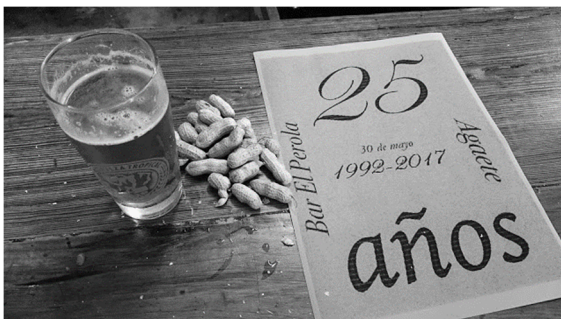 25
Bar El Perola
30 de mayo
1992-2017
Agaete
años